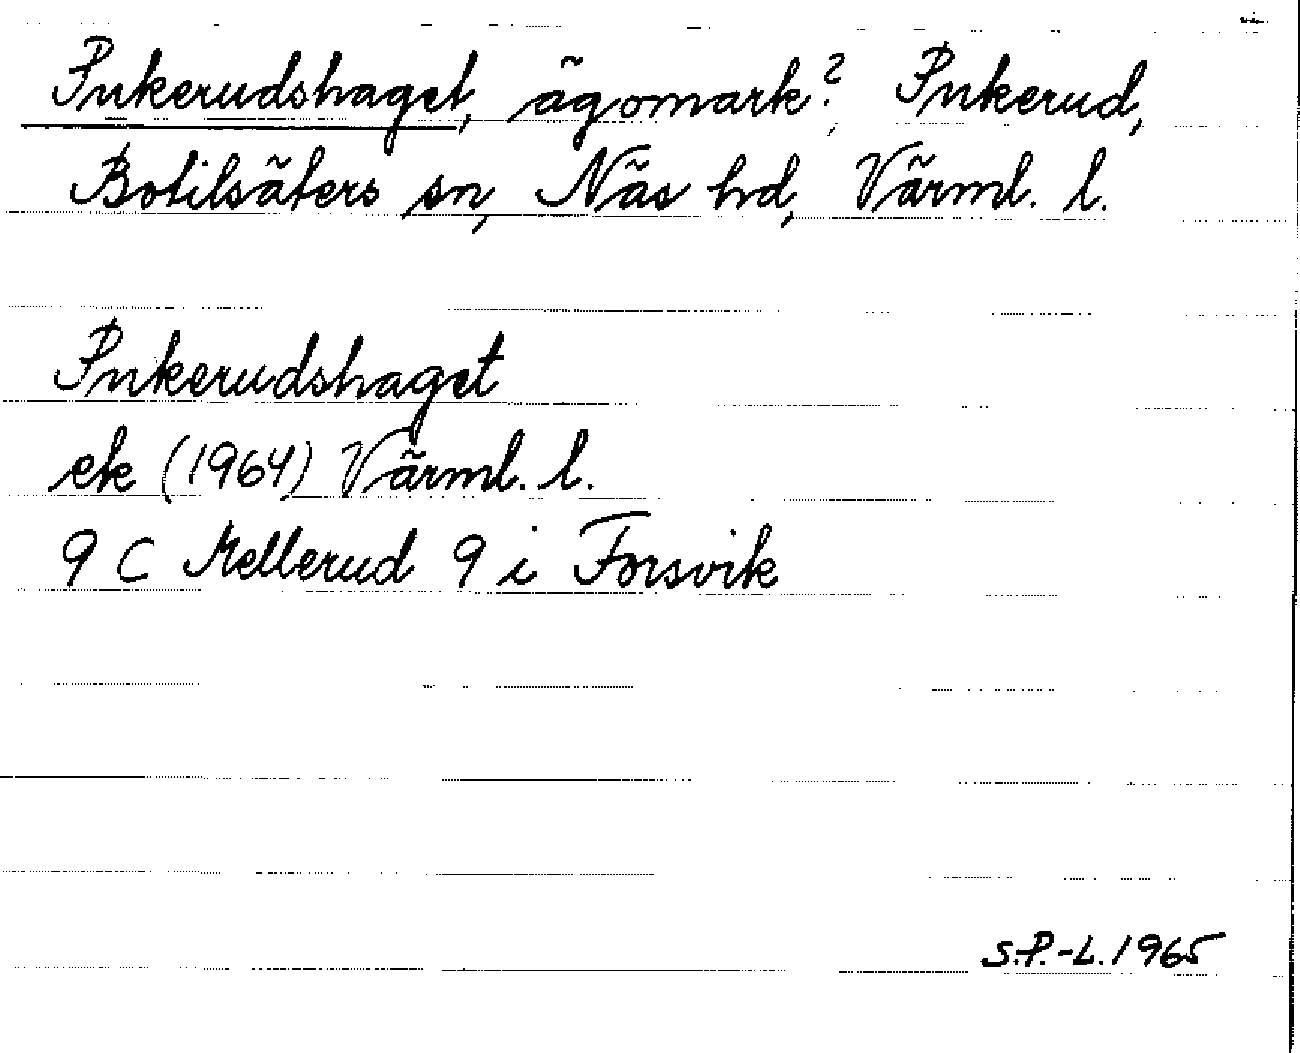 Pukerudshaget, ägomark? Pukerud,
Botilsäters sn, Näs hd, Värml. l.
Pukerudshaget
ek (1964) Värml. l.
9 C Mellerud 9 i Forsvik
S.P.-L. 1965